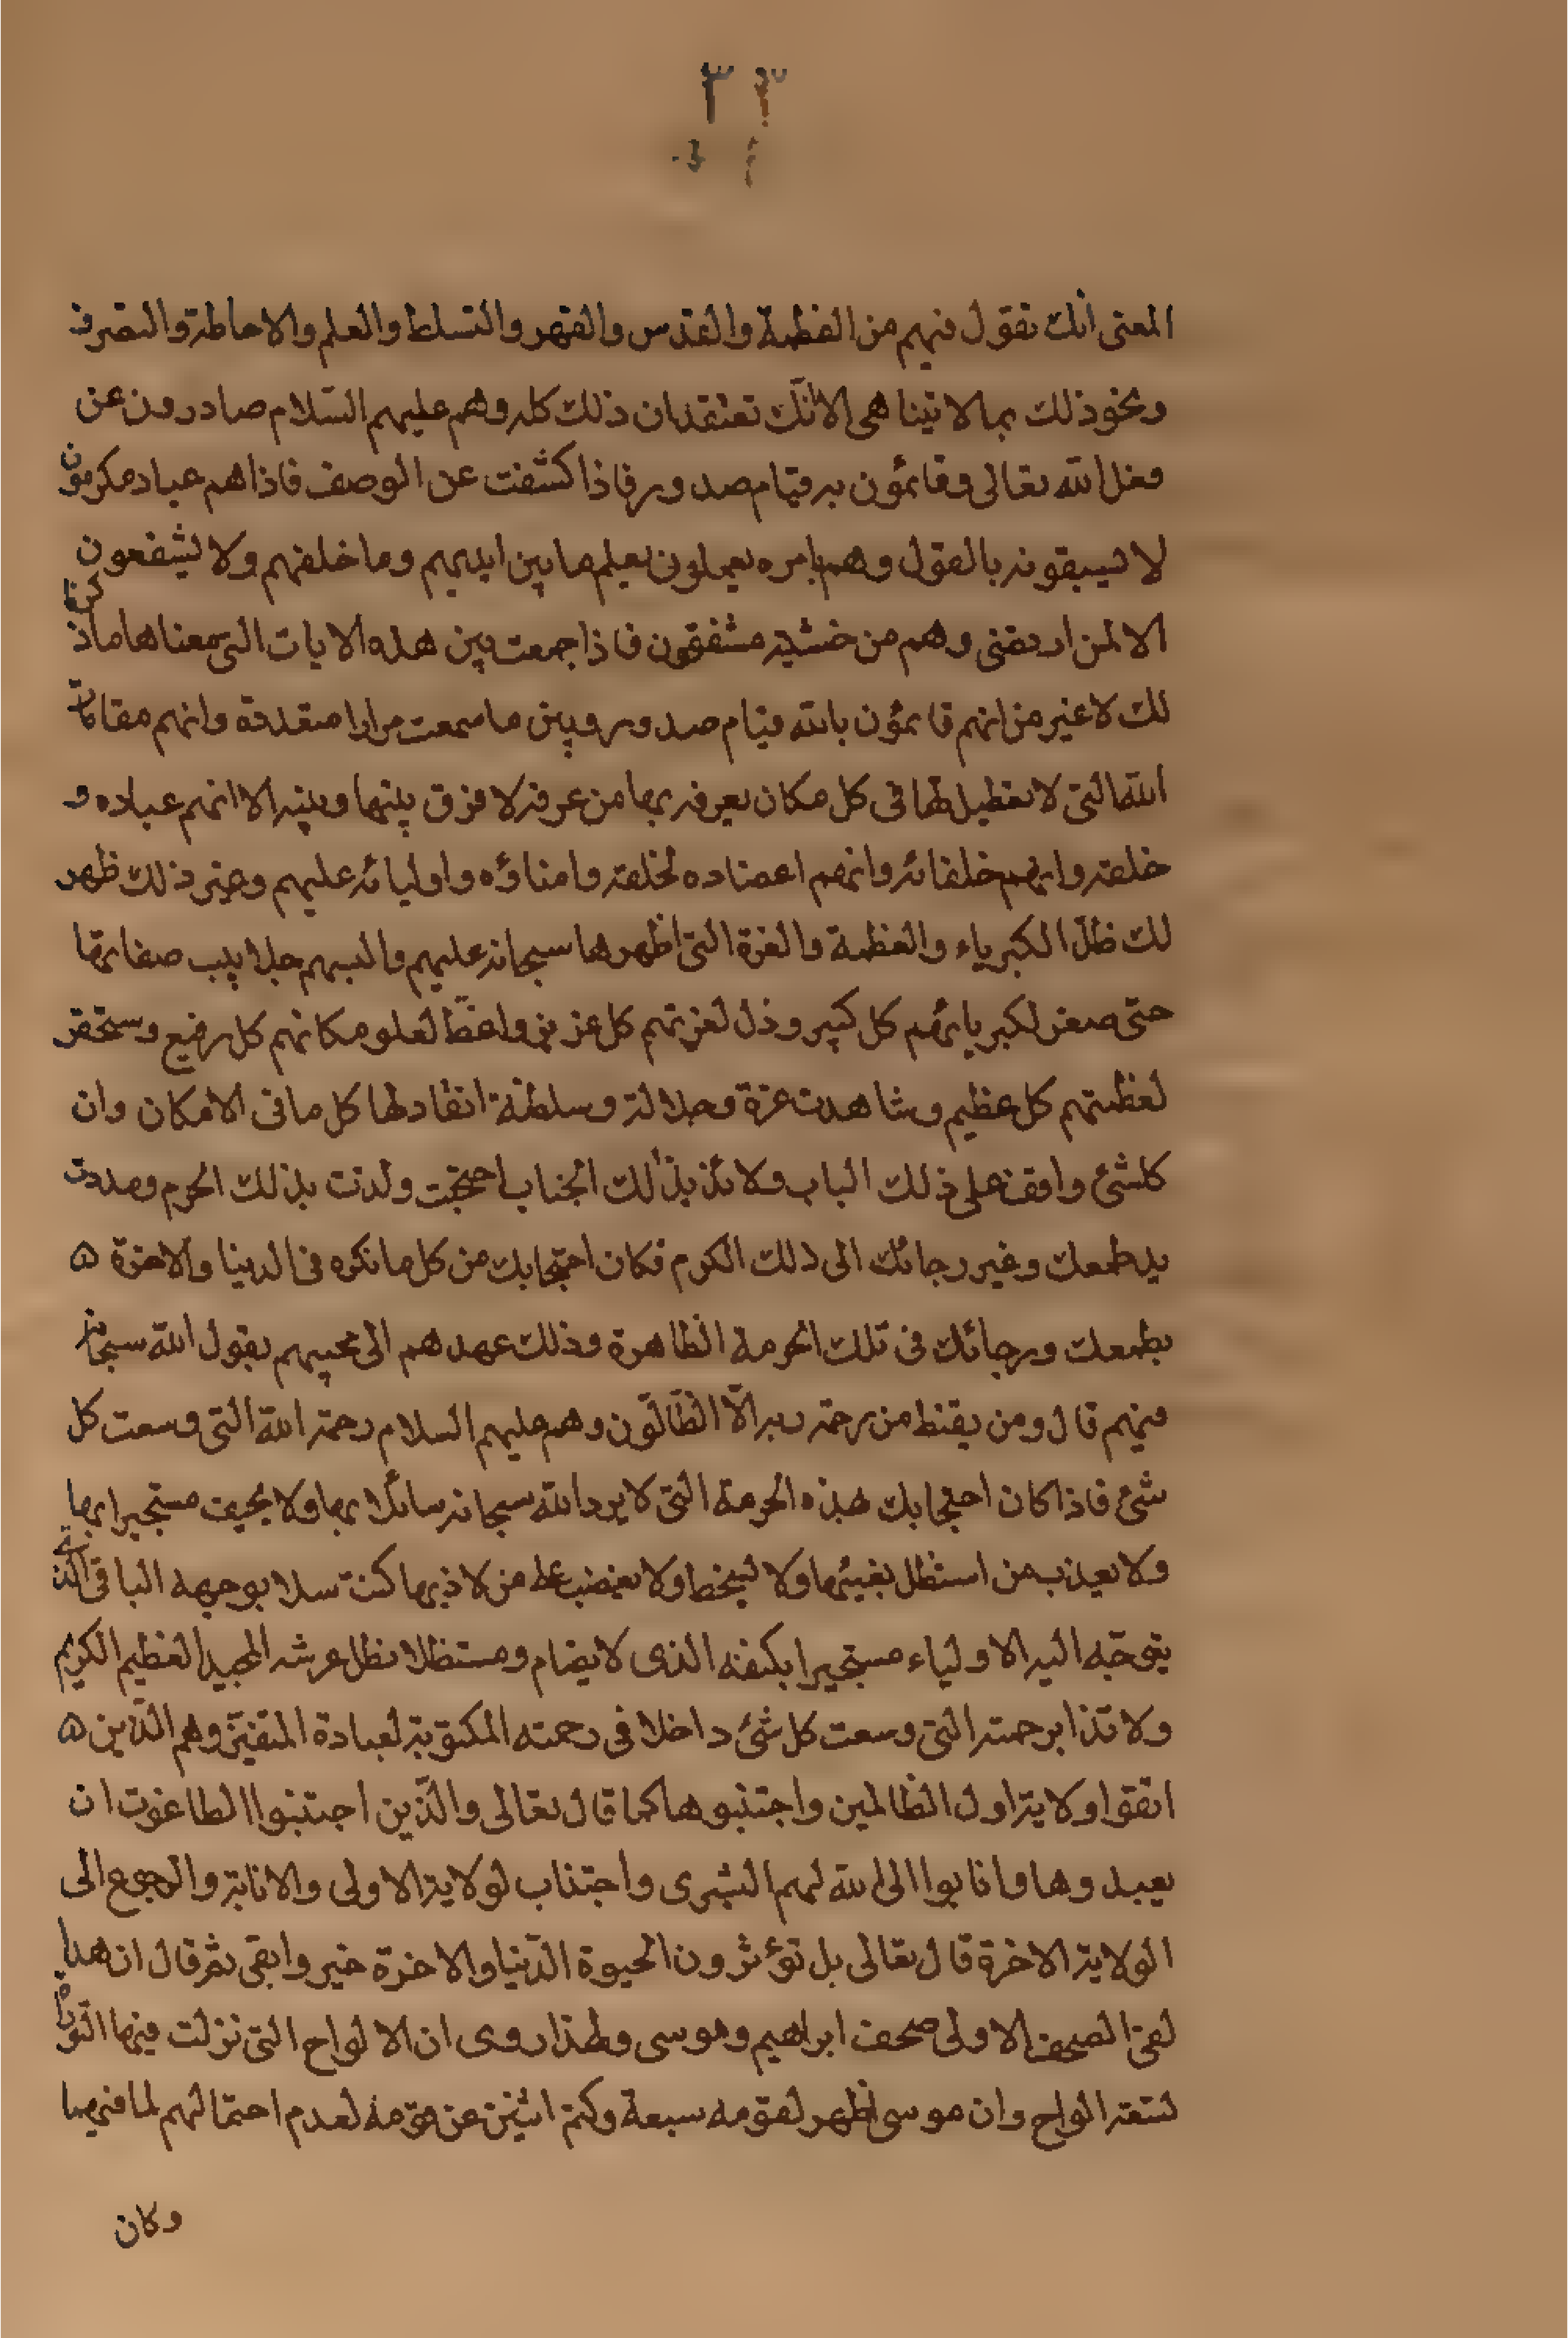 المعنى انك تقول فيهم من العظمة والقدس والقهر والتسلط والعلم والاحاطة والتصرف
ونحو ذلك بما لا تيناهى الا انّك تعتقد ان ذلك كله وهم عليهم السّلام صادرون عن
فعل الله تعالى وقائمون به قيام صدور فاذا كشفت عن الوصف فاذا هم عباد مكرمون
لا يسبقونه بالقول وهم بامره يعملون يعلم ما بين ايديهم وما خلفهم ولا يشفعون
الا لمن ارتضى وهم من خشيته مشفقون فاذا جمعت بين هذه الايات التى معناها ما ذكرنا
لك لا غير من انهم قائمون بالله قيام صدور وبين ما سمعت مرارا متعددة وانهم مقامات
الله التى لا تعطيل لها فى كل مكان يعرفه بها من عرفه لا فرق بينها وبينه الا انهم عباده و
خلقه وانهم خلفائه وانهم اعضاده لخلقه وامناؤه واوليائه عليهم وحين ذلك ظهر
لك ظلّ الكبرياء والعظمة والعزة التى اظهرها سبحانه عليهم والبسهم جلابيب صفاتها
حتى صغر لكبريائهم كل كبير وذل لعزتهم كل عزيز وانحطّ لعلو مكانهم كل رفيع وستحقر
لعظمتهم كل عظيم وشاهدت عزة وجلالة وسلطنة انقاد لها كل ما فى الامكان وان
كلشئ واقف على ذلك الباب ولائذ بذلك الجناب احتجبت ولذت بذلك الحرم ومددت
يد طمعك وغير رجائك الى ذلك الكرم فكان احتجابك من كل ما تكره فى الدنيا والاخرة ۵
بطمعك ورجائك فى تلك الحرمة الظاهرة وذلك عهدهم الى محبيهم بقول الله سبحانه
فيهم قال ومن يقنط من رحمة ربه الّا الضّالّون وهم عليهم السلام رحمة الله التى وسعت كل
شئ فاذا كان احتجابك هبذه الحرمة التى لا يرد الله سبحانه سائلا بها ولا يخيف مستجيرا بها
ولا يعذب من استظل بفيئها ولا يسخط ولا يغضب على من لاذ بها كنت بوجهه الباقى الذى
يتوجّه اليه الاولياء مستجيرا بكنفه الذى لا يضام ومستظلا بظل عرشه المجيد العظيم الكريم
ولائذا برحمته التى وسعت كل شئ داخلا فى رحمته المكتوبة لعباده المتقين وهم الّذين ۵
اتقوا ولاية اول الظّالمين واجتنبوها كما قال تعالى والّذين اجتنبوا الطاغوت ان
يعبدوها وانابوا الى الله لهم البشرى واجتناب لولاية الاولى والانابة والرجوع الى
الولاية الاخرة قال تعالى بل تؤثرون الحيوة الدّنيا والاخرة خير وابقى ثم قال ان هذا
لفى الصحف الاولى صحف ابراهيم وموسى ولهذا روى ان الالواح التى نزلت فيها التوراة
لتسعة الواح وان موسى اظهر لقومه سبعة وكتم اثنين عن قومه لعدم احتمالهم لما فيهما
وكان